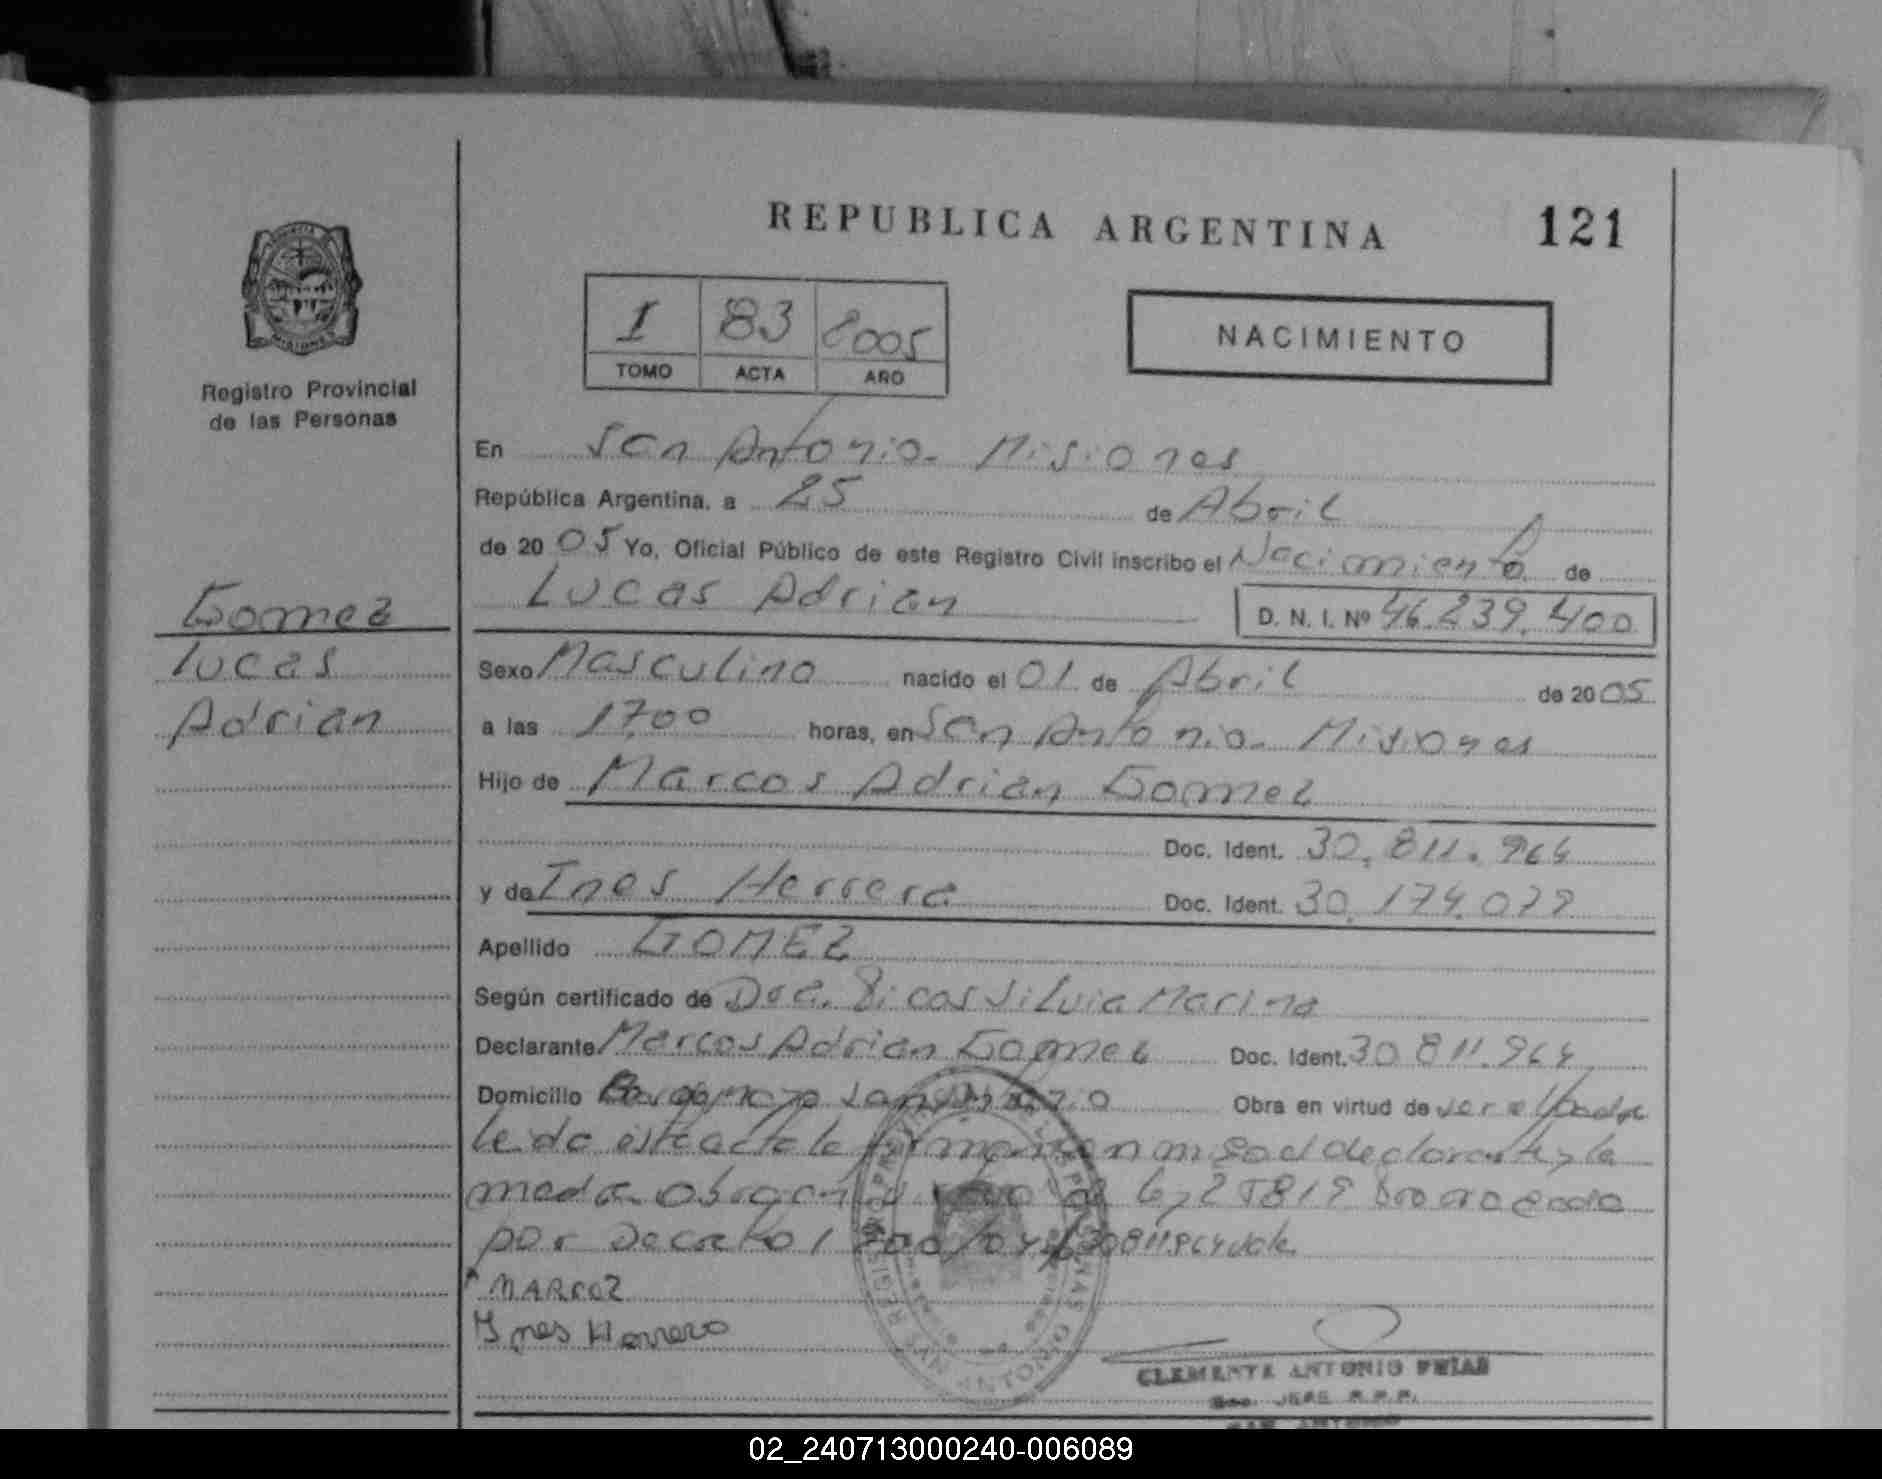 REPUBLICA ARGENTINA 121
Registro Provincial
de las Personas
I 83 2005
TOMO ACTA AÑO
NACIMIENTO
En San Antonio - Misiones
República Argentina, a 25 de Abril
de 20 05 Yo, Oficial Público de este Registro Civil inscribo el Nacimiento de
Lucas Adrian D. N. I. Nº 46.239.400
Gomez
Lucas
Adrian
Sexo Masculino nacido el 01 de Abril de 20 05
a las 17,00 horas, en San Antonio - Misiones
Hijo de Marcos Adrian Gomez
Doc. Ident. 30.811.964
y de Ines Herrera Doc. Ident. 30.174.079
Apellido GOMEZ
Según certificado de Dra. Silvia Marina
Declarante Marcos Adrian Gomez Doc. Ident. 30.811.964
Domicilio San Antonio Obra en virtud de ser el padre
leida este acta la firman conmigo el declarante y la
madre. Obrando
por Decreto 30811964 vale.
MARCOZ
Ines Herrera
CLEMENTE ANTONIO FRIAS
JEFE R.P.P.
SAN ANTONIO
02_240713000240-006089